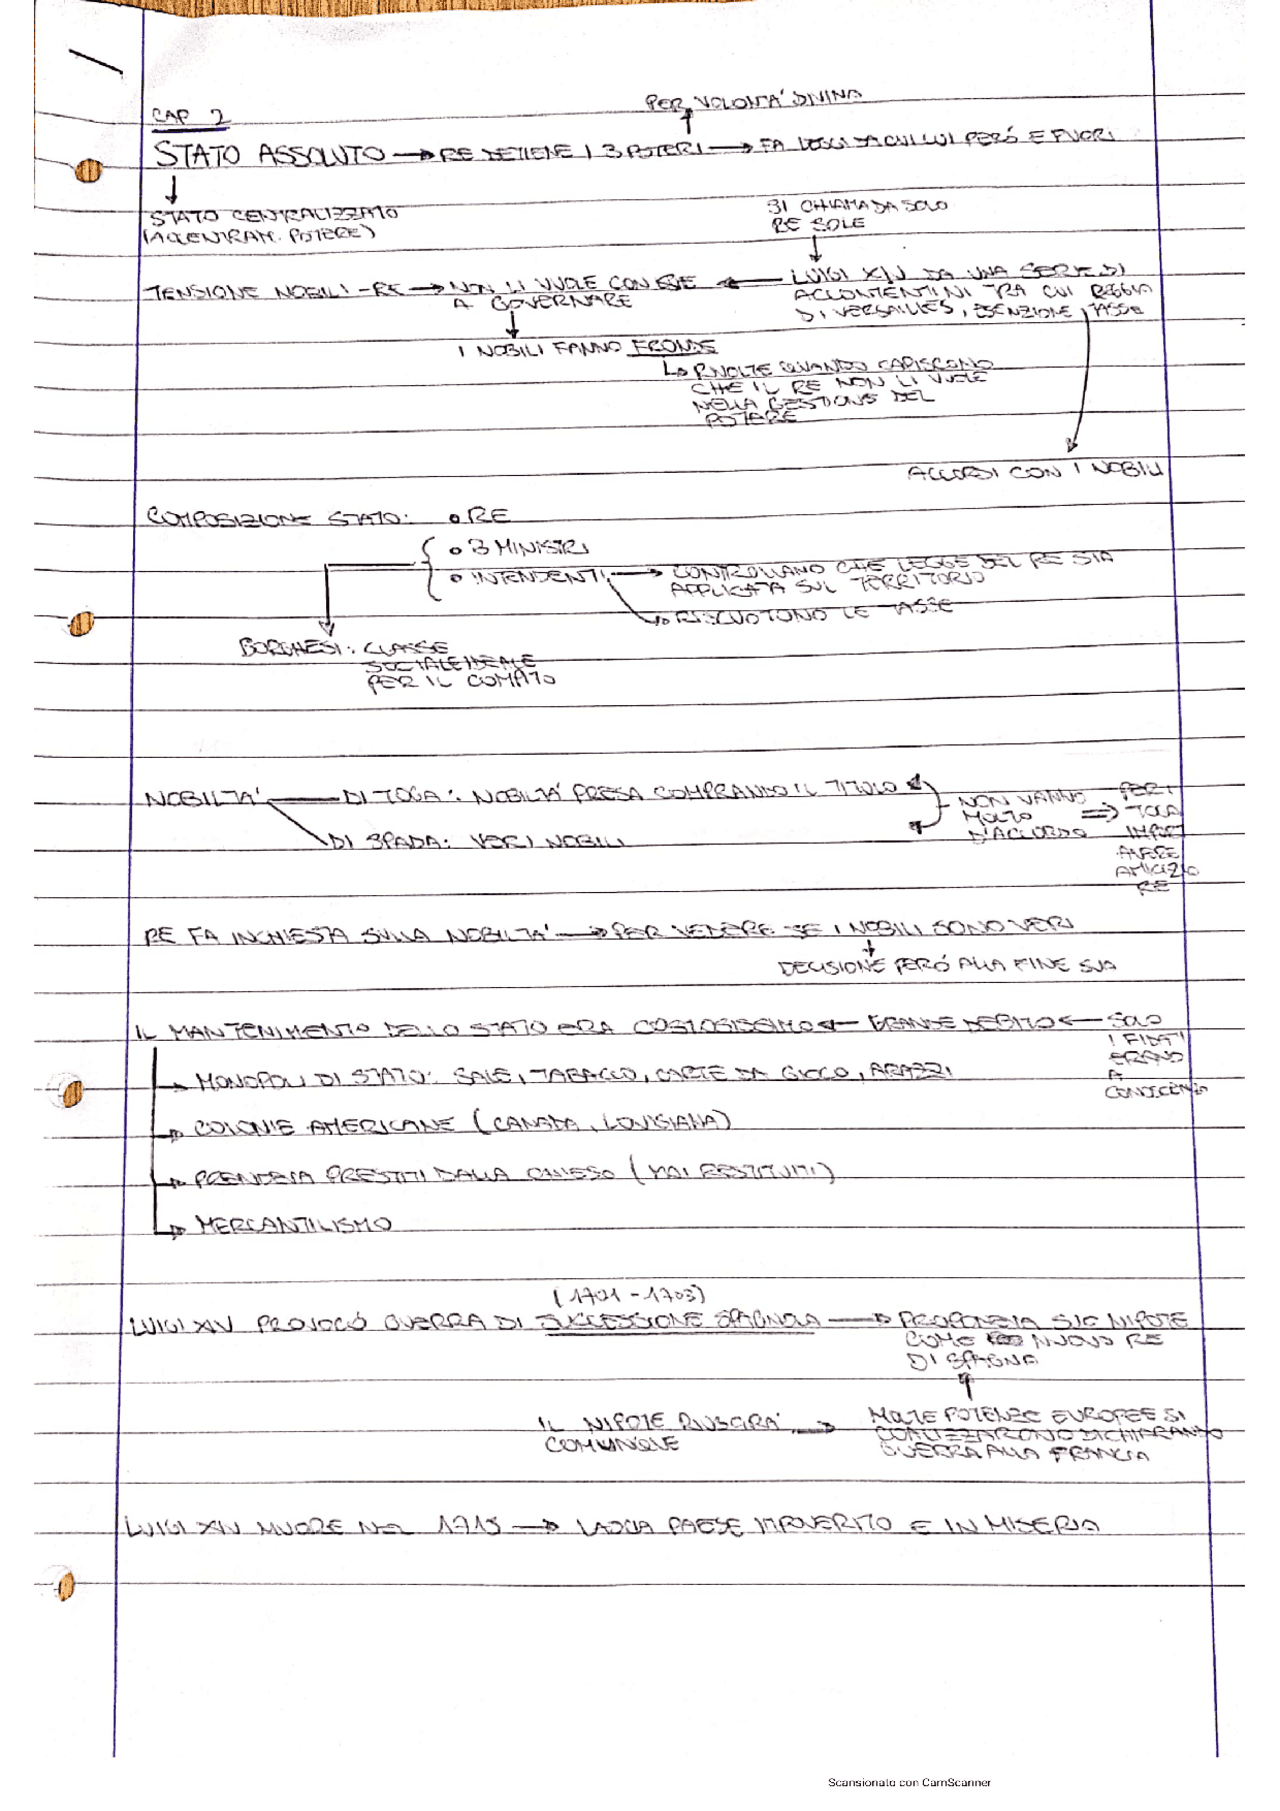 PER VOLONTA' DIVINA
CAP 2
STATO ASSOLUTO → RE DETIENE I 3 POTERI → FA LEGGI DA CUI LUI PERÓ E FUORI
STATO CENTRALIZZATO
(ACCENTRAM. POTERE)
SI CHIAMA DA SOLO
RE SOLE
TENSIONE NOBILI - RE → NON LI VUOLE CON SE
A GOVERNARE
← LUIGI XIV DA UNA SERIE DI
ACCONTENTINI TRA CUI REGGIA
DI VERSAILLES, ESENZIONE TASSE
I NOBILI FANNO FRONDE
RIVOLTE QUANDO CAPISCONO
CHE IL RE NON LI VUOLE
NELLA GESTIONE DEL
POTERE
ACCORDI CON I NOBILI
COMPOSIZIONE STATO: • RE
• 3 MINISTRI
• INTENDENTI → CONTROLLANO CHE LEGGE DEL RE STA
APPLICATA SUL TERRITORIO
→ RISCUOTONO LE TASSE
BORGHESI: CLASSE
SOCIALE IDEALE
PER IL COMPITO
NOBILTA' DI TOGA: NOBILTÁ PRESA COMPRANDO IL TITOLO
DI SPADA: VERI NOBILI
NON VANNO
MOLTO
D'ACCORDO
⇒ PER I
TOGA
IMPO
AVERE
AMICIZIO
RE
RE FA INCHIESTA SULLA NOBILTA' → PER VEDERE SE I NOBILI SONO VERI
DECISIONE PERÓ ALLA FINE SUA
IL MANTENIMENTO DELLO STATO ERA COSTOSISSIMO ← GRANDE DEBITO ← SOLO
I FIDATI
ERANO
A
CONOSCENZA
→ MONOPOLI DI STATO: SALE, TABACCO, CARTE DA GIOCO, ARAZZI
→ COLONIE AMERICANE (CANADA, LOUISIANA)
→ PRENDEVA PRESTITI DALLA CHIESA (MAI RESTITUITI)
→ MERCANTILISMO
(1701 - 1703)
LUIGI XIV PROVOCÓ GUERRA DI SUCCESSIONE SPAGNOLA → PROPONEVA SUO NIPOTE
COME NUOVO RE
DI SPAGNA
IL NIPOTE RIUSCIRA'
COMUNQUE
→ MOLTE POTENZE EUROPEE SI
COALIZZARONO DICHIARANDO
GUERRA ALLA FRANCIA
LUIGI XIV MUORE NEL 1715 → LASCIA PAESE IMPOVERITO E IN MISERIA
Scansionato con CamScanner